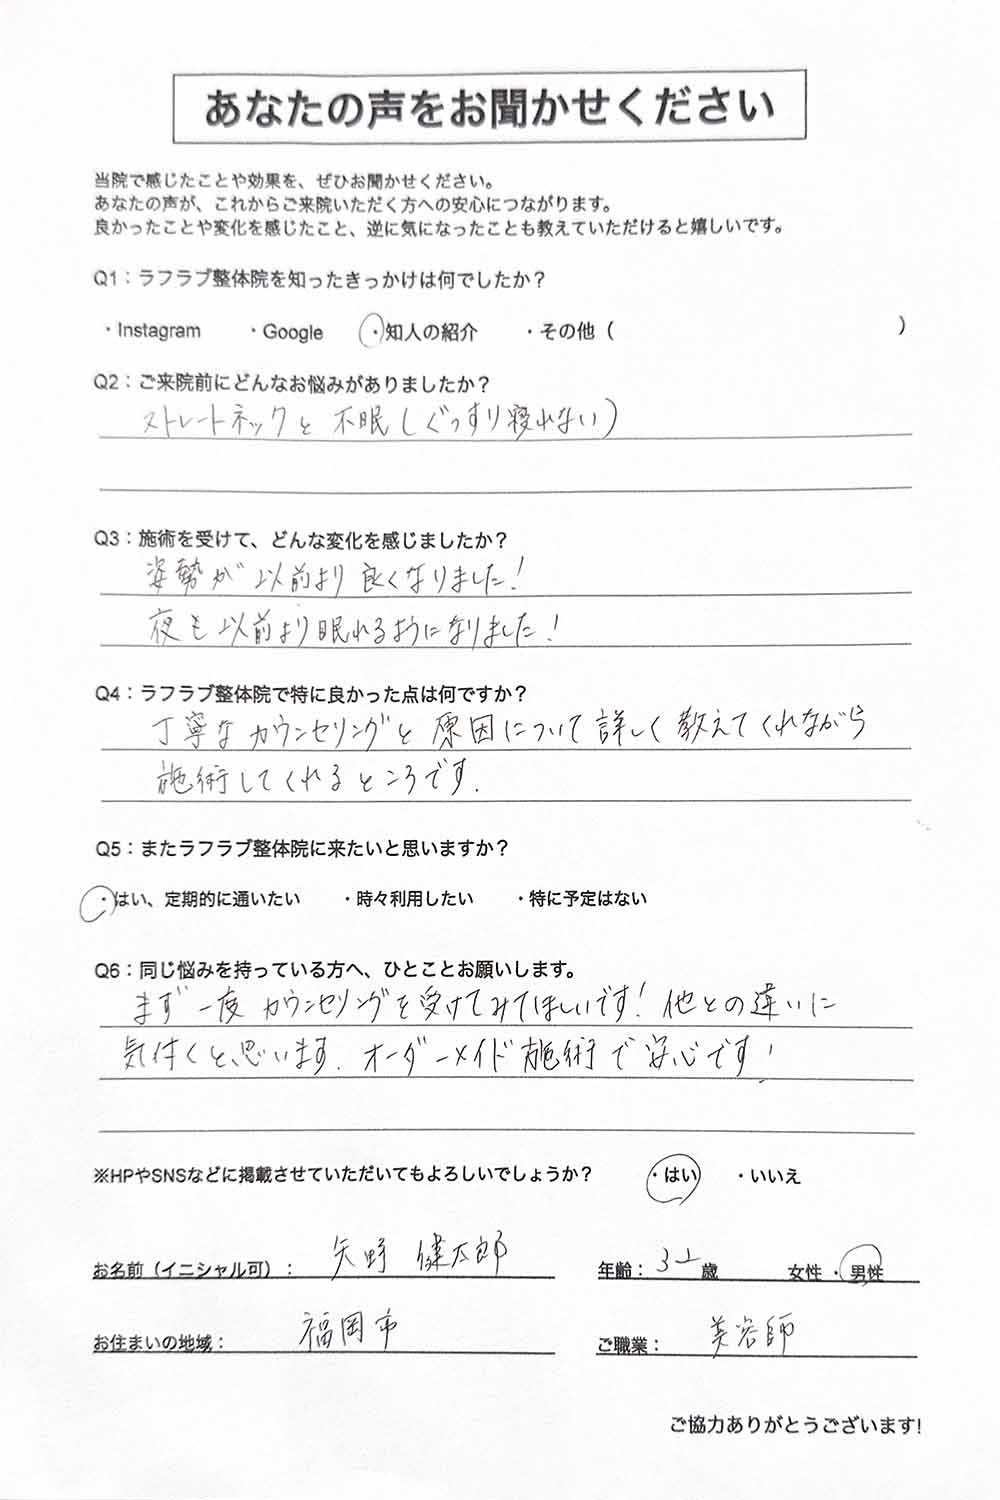 あなたの声をお聞かせください
当院で感じたことや効果を、ぜひお聞かせください。
あなたの声が、これからご来院いただく方への安心につながります。
良かったことや変化を感じたこと、逆に気になったことも教えていただけると嬉しいです。
Q1：ラフラブ整体院を知ったきっかけは何でしたか？
・Instagram ・Google ・知人の紹介 ・その他（ ）
Q2：ご来院前にどんなお悩みがありましたか？
ストレートネックと不眠（ぐっすり寝れない）
Q3：施術を受けて、どんな変化を感じましたか？
姿勢が以前より良くなりました！
夜も以前より眠れるようになりました！
Q4：ラフラブ整体院で特に良かった点は何ですか？
丁寧なカウンセリングと原因について詳しく教えてくれながら
施術してくれるところです.
Q5：またラフラブ整体院に来たいと思いますか？
・はい、定期的に通いたい ・時々利用したい ・特に予定はない
Q6：同じ悩みを持っている方へ、ひとことお願いします。
まず一度カウンセリングを受けてみてほしいです！他との違いに
気付くと思います. オーダーメイド施術で安心です！
※HPやSNSなどに掲載させていただいてもよろしいでしょうか？ ・はい ・いいえ
お名前（イニシャル可）： 矢野 健太郎
年齢： 歳 女性・男性
お住まいの地域： 福岡市
ご職業： 美容師
ご協力ありがとうございます!